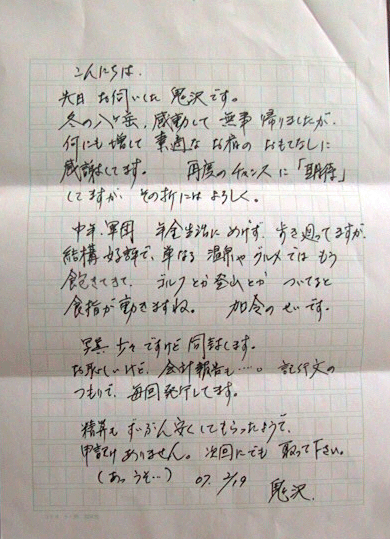 こんにちは、
先日 お伺いした 鬼沢です。
冬の八ヶ岳、感動して 無事 帰りましたが、
何にも増して 素適な お宿の おもてなしに
感謝してます。 再度のチャンスに「期待」
してますが その折には よろしく。
中年軍団 年金生活に めげず 歩き廻ってますが、
結構 好評で、単なる 温泉や グルメでは もう
飽きてきて、ゴルフとか 登山とか ついてると
食指が 動きますね。 加令の せいです。
写真 少々 ですけど 同封します。
お恥しいけど、会計報告も……。 記行文の
つもりで、毎回 発行してます。
精算も ずいぶん 安くしてもらったようで、
申訳 ありません。次回にでも 取って下さい。
(あっ うそ…) 07. 2/19
鬼沢.